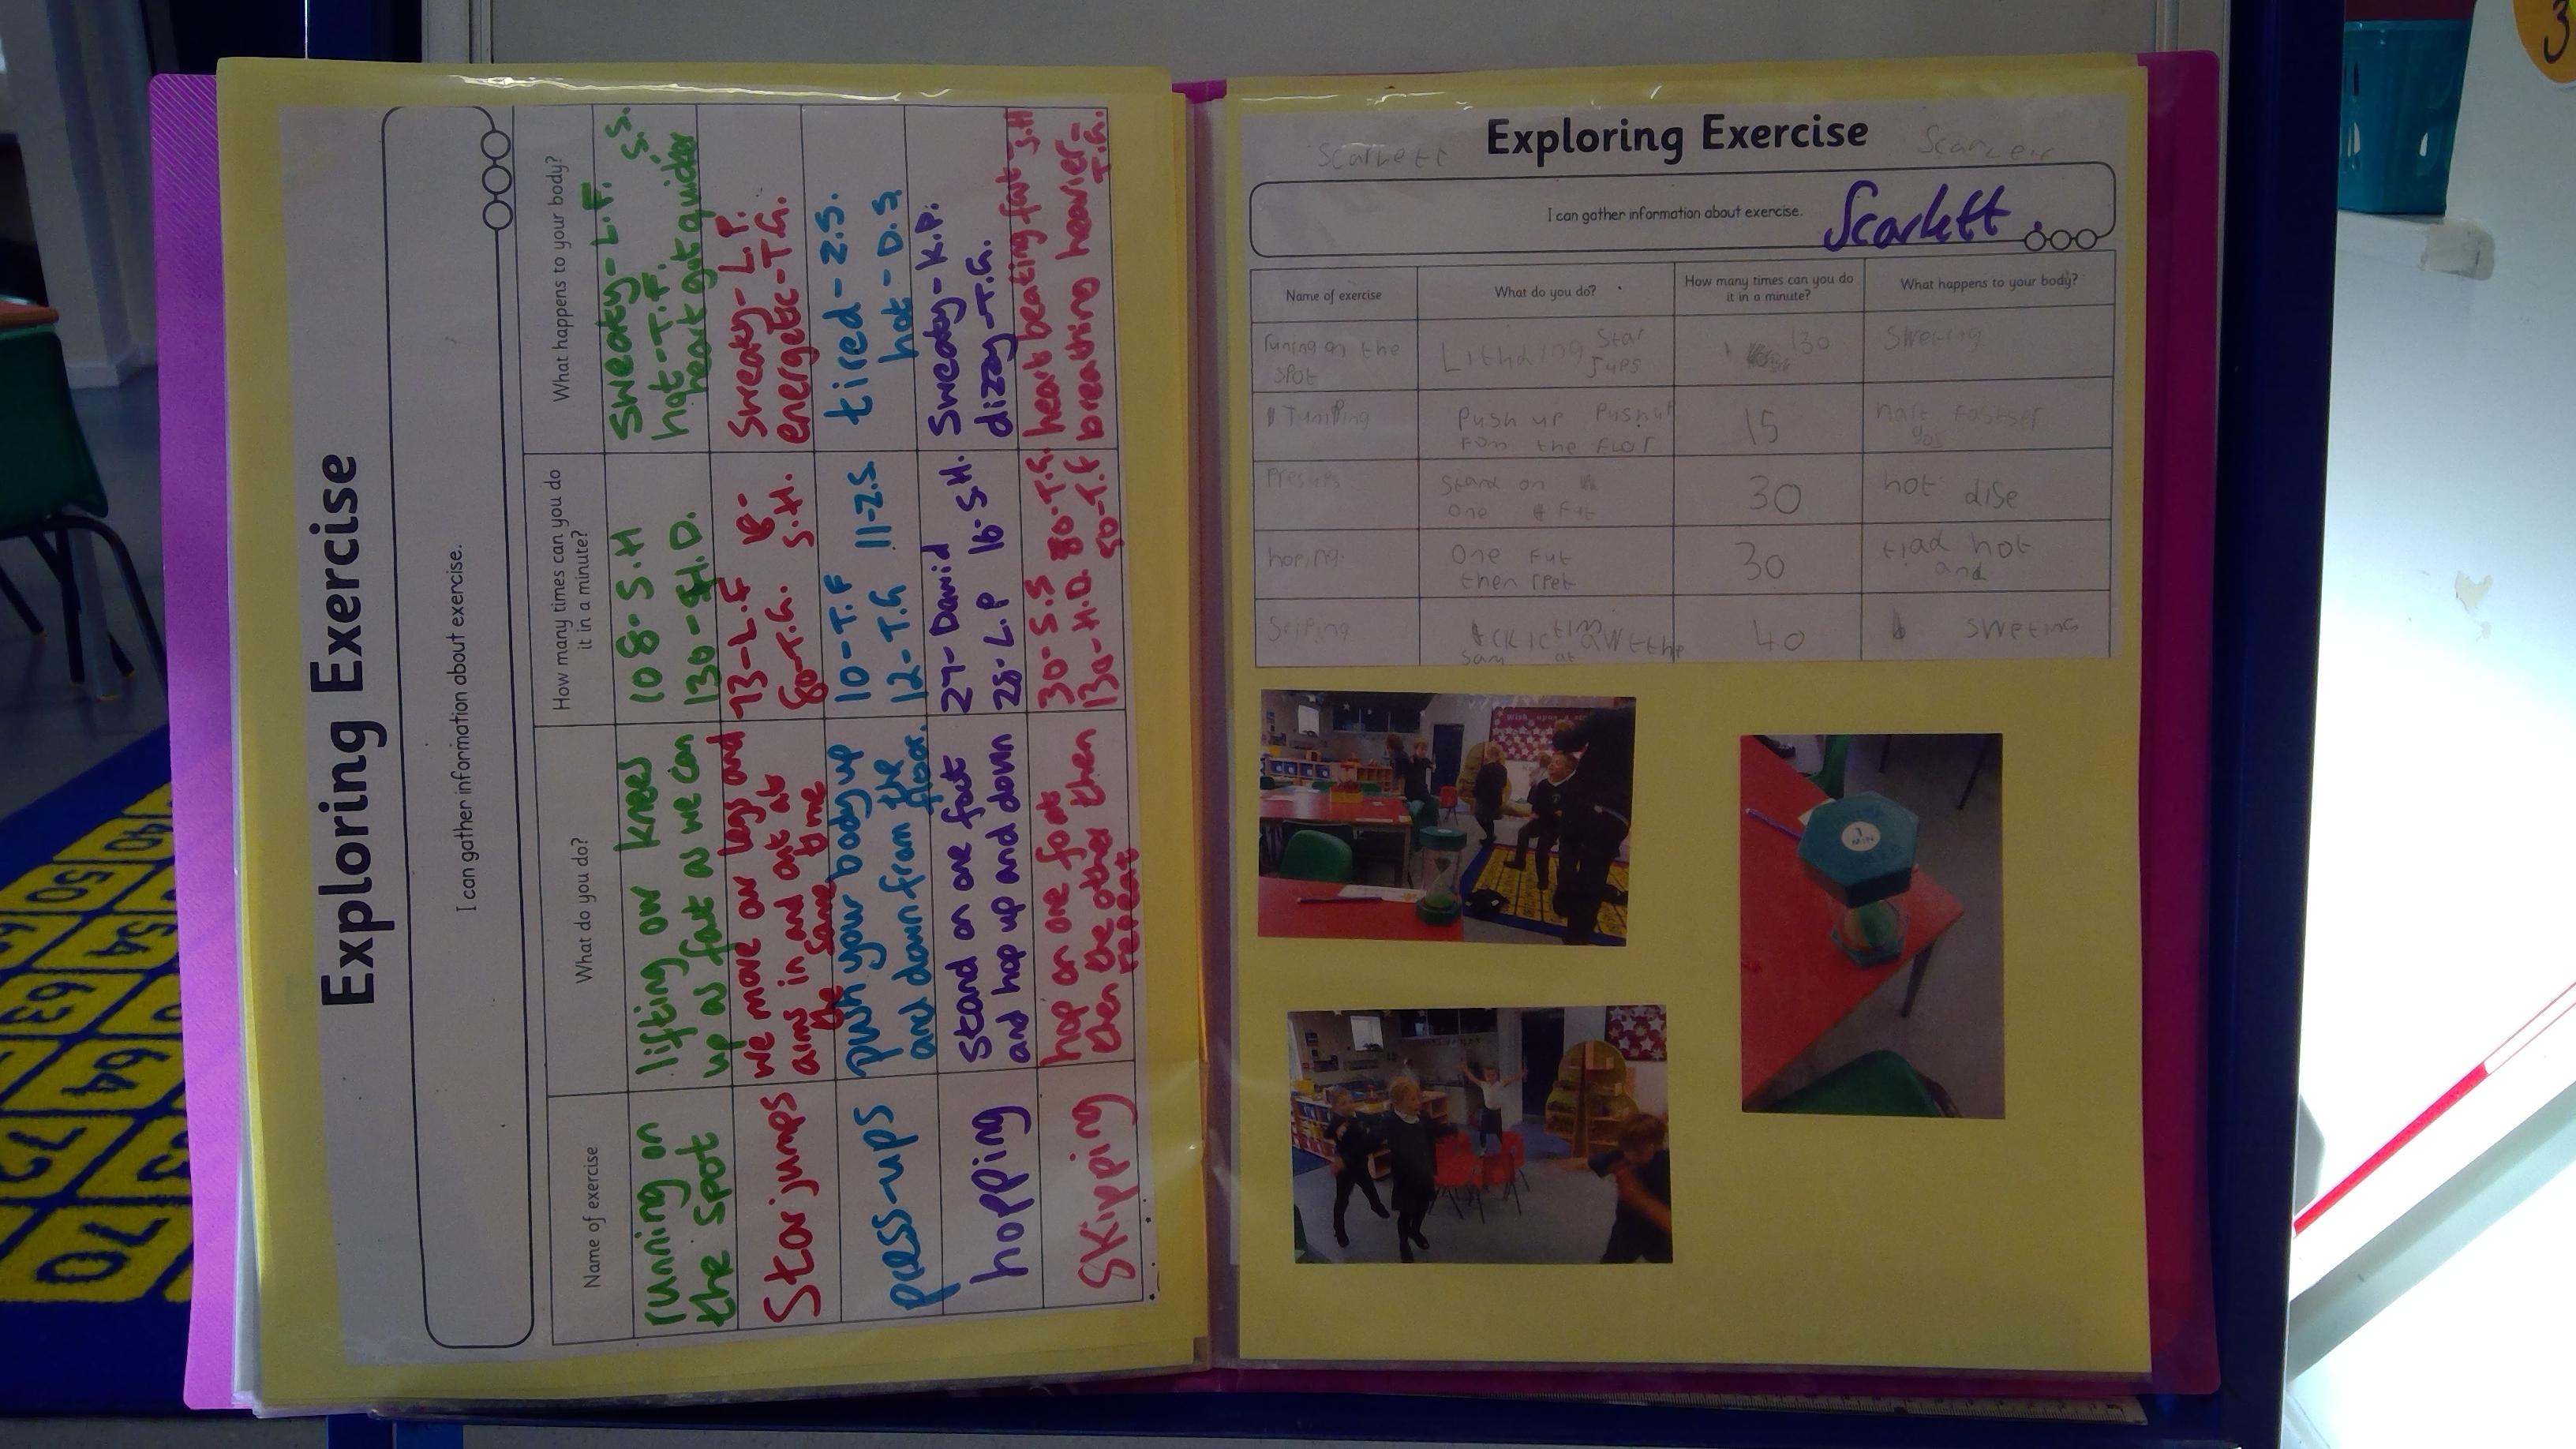 Exploring Exercise
I can gather information about exercise.
Name of exercise
What do you do?
How many times can you do
it in a minute?
What happens to your body?
running on
the spot
lifting our knees
up as fast as we can
108-S.H
130-H.D.
Sweaty-L.F.
S.S.
hot-T.F.
heart got quicker
Star jumps
we move our legs and
arms in and out at
the same time
73-L.F
18-
S.H.
80-T.G.
Sweaty-L.P.
energetic-T.G.
press-ups
push your body up
and down from the
floor.
10-T.F
11-Z.S.
12-T.G
tired-Z.S.
hot-D.S.
hopping
Stand on one foot
and hop up and down
27-Dawid
28-L.P
16-S.H.
Sweaty-K.P.
dizzy-T.G.
Skipping
hop on one foot
then the other then
repeat
30-S.S
80-T.G.
130-H.D.
50-T.F
heart beating fast-S.H
breathing heavier-
T.G.
Exploring Exercise
Scarlett
I can gather information about exercise.
Scarlett
Name of exercise
What do you do?
How many times can you do
it in a minute?
What happens to your body?
runing on the
spot
Star
Jups
130
Swering
Jumping
Push up Pushup
Fom the Flor
15
hart Fastser
gos
Presups
Stand on
one Fut
30
hot dise
hoping
One Fut
then rpet
30
tiad hot
and
Sciping
40
sweting
1
MIN
40
50
54
63
64
70
72
3